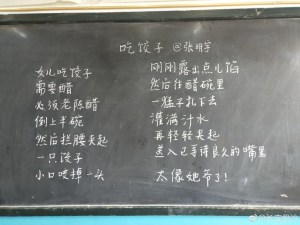 吃饺子 @张明学
女儿吃饺子
需要醋
必须老陈醋
倒上半碗
然后拦腰夹起
一只饺子
小口咬掉一头
刚刚露出点儿馅
然后往醋碗里
一猛子扎下去
灌满汁水
再轻轻夹起
送入已等待良久的嘴里
太像她爷了！